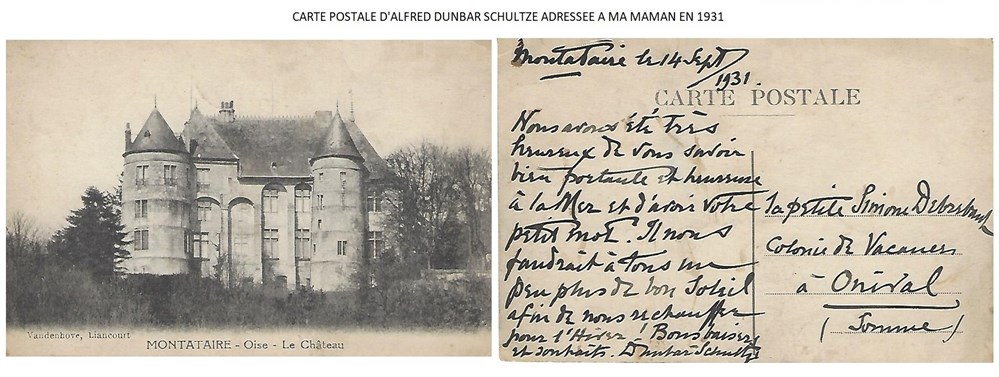 CARTE POSTALE D'ALFRED DUNBAR SCHULTZE ADRESSEE A MA MAMAN EN 1931
Vandenhove, Liancourt
MONTATAIRE - Oise - Le Château
Montataire le 14 Sept
1931.
CARTE POSTALE
Nous avons été très
heureux de vous savoir
bien portante et heureuse
à la Mer et d'avoir votre
petit mot. Il nous
faudrait à tous un
peu plus de bon Soleil
afin de nous rechauffer
pour l'Hiver! Bons baisers
et souhaits. Dunbar Schultze
la petite Simone
Colonie de Vacances
à Onival
(Somme)